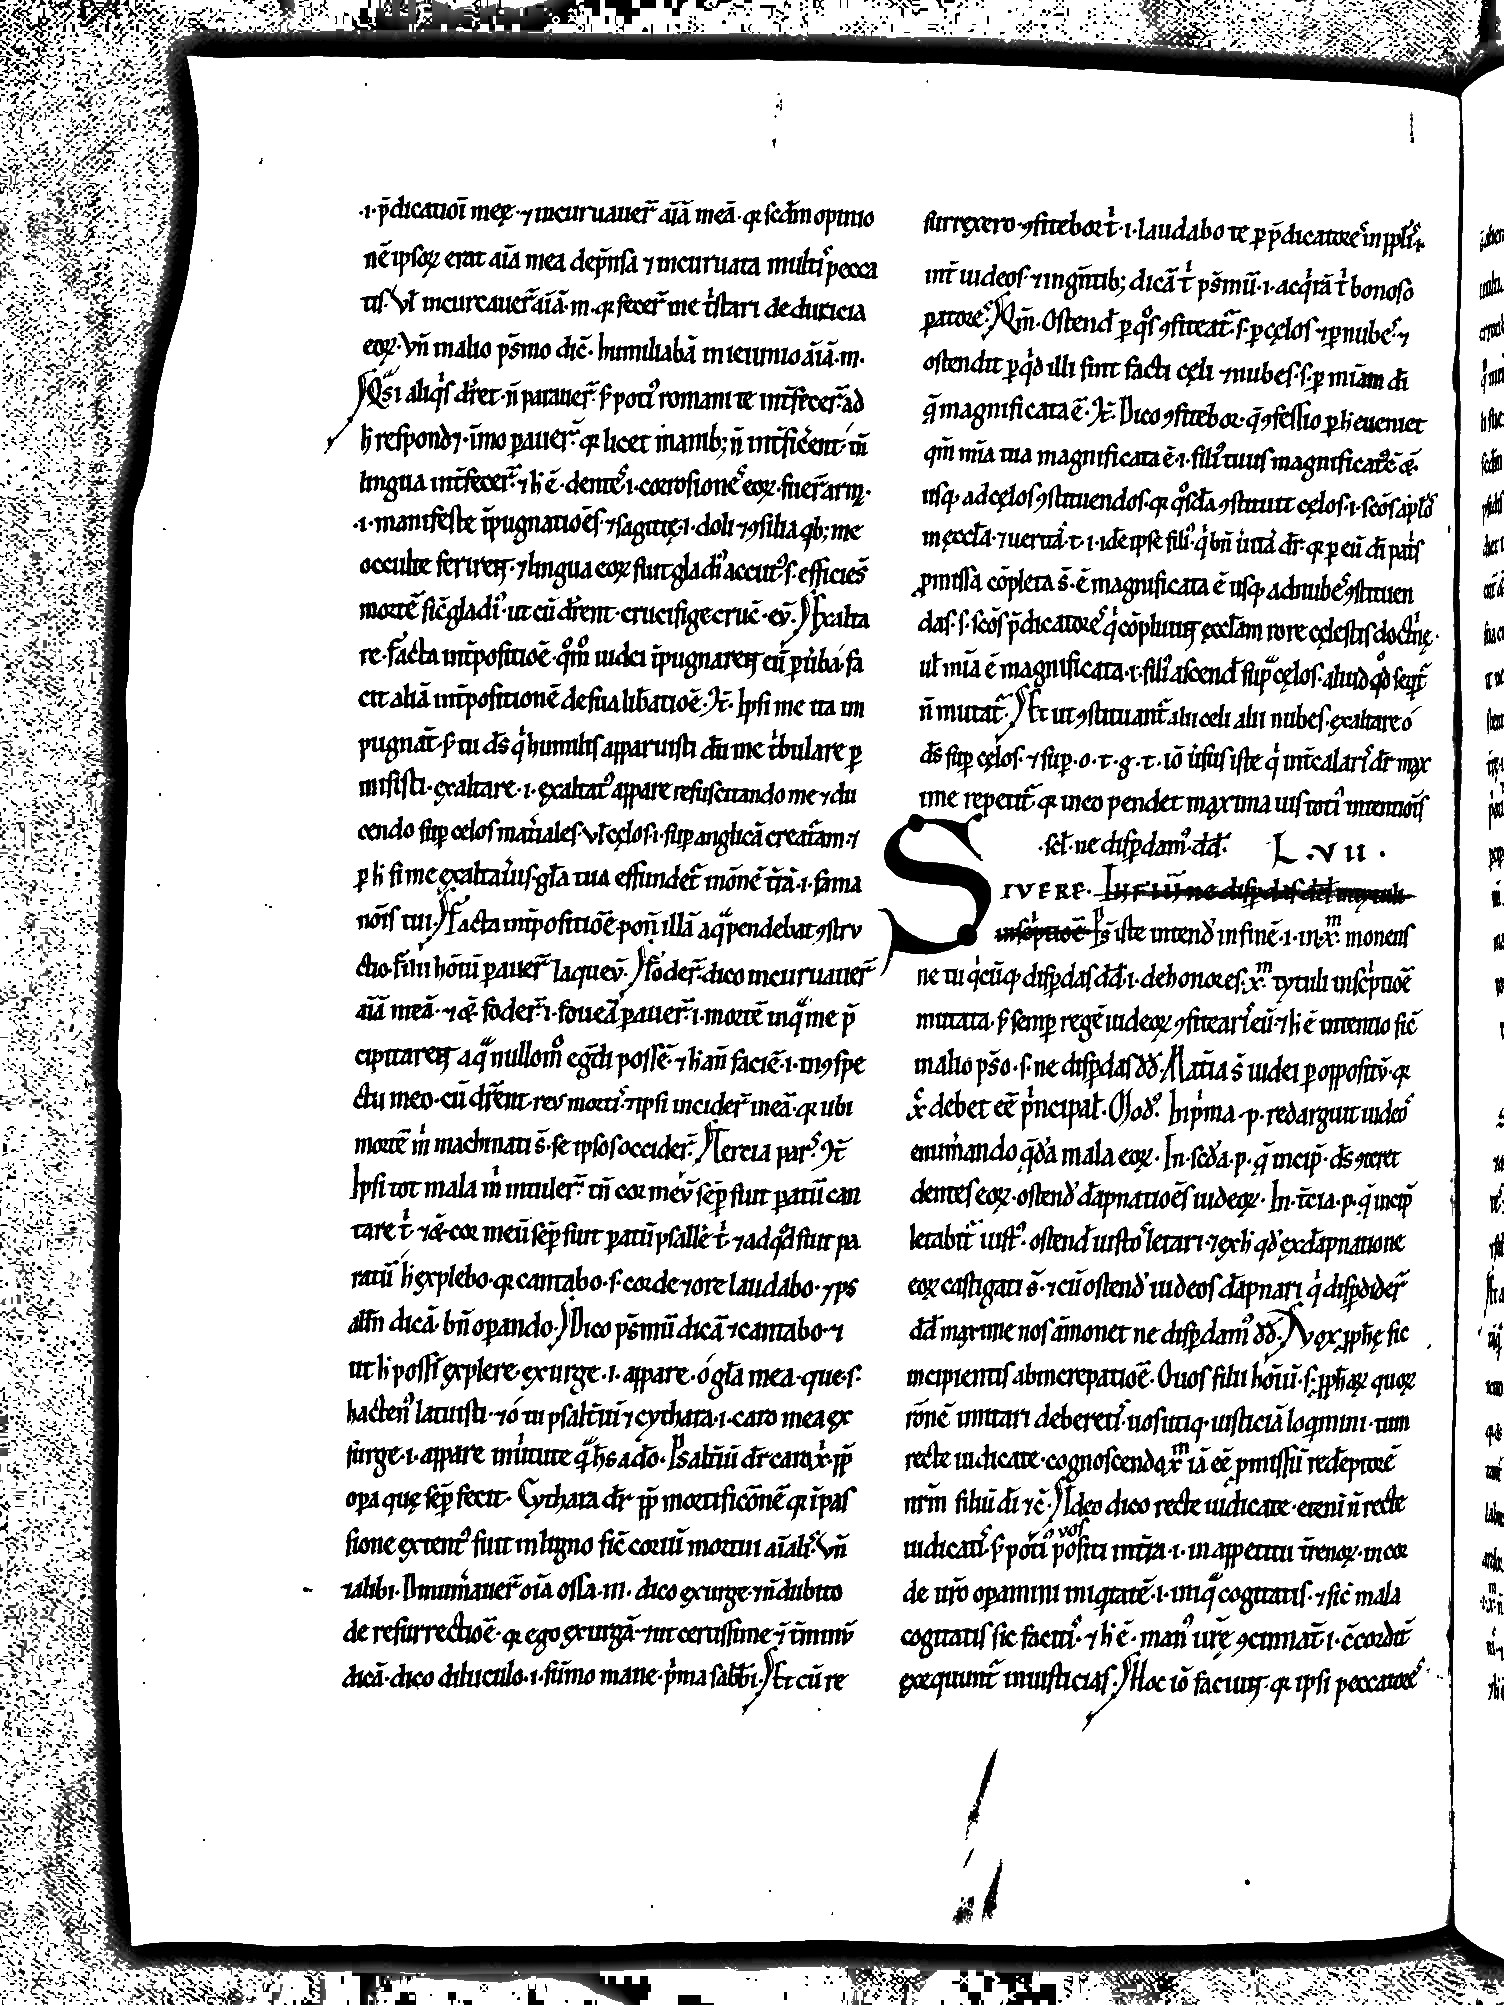 .i. p̄dicatiōi meę. ⁊ incuruauer̄ aīā meā. q̄ scdm̄ opinio
nē ipsoꝝ erat aīa mea dep̄nsa ⁊ incuruata multis pecca
tis. Vł incuruauer̄ aīā. m. q̄ fecer̄ me t̄stari de duricia
eoꝝ. Vn̄ in alio ps̄mo dic̄. humiliabā in ieiunio aīā. m.
Qͣsi aliqͥs dr̄et. n̄ parauer̄. sꝫ potiꝰ romani te int̄fecer̄. ad
h̄ respond⁊. īmo ꝑauer̄. q̄ licet manibꝫ n̄ int̄ficerent. tn̄
lingua int̄fecer̄. ⁊ h̄ ē. dentes .i. corrosiones eoꝝ. fuer̄ arm̄.
.i. manifeste īpugnatiōes ⁊ sagittę .i. doli ⁊ ꝯsilia qͥbꝫ me
occulte ferirent. ⁊ lingua eoꝝ fuit gladiꝰ accutꝰ. s. efficies
mortē sic̄ gladiꝰ. ut cū dr̄ent. crucifige cruc̄. eū. Exalta
re. Facta int̄positiōe. qͦm iudei īpugnarent eū ꝑ ūba. fa
cit aliā int̄positionē de sua lib̄atiōe. It̄. Ipsi me ita im
pugnāt. sꝫ tu ds̄ qͥ humilis apparuisti dū me tͥbulare ꝑ
misisti. exaltare. i. exaltatꝰ appare resuscitando me ⁊ du
cendo suꝑ celos mat̄iales uł cęlos .i. suꝑ anglicā creat̄am. ⁊
ꝑ h̄ si me exaltauͥis. gła tua effundet̄ in om̄nē t̄rā .i. fama
nōis tui. Facta int̄positiōe. pon̄ illā a qͣ pendebat ꝯstru
ctio. Filii hōiū ꝑauer̄ laqueū. Foder̄. dico incuruauer̄
aīā meā. ⁊ c̄. foder̄ .i. foueā ꝑauer̄ .i. mortē in qͣ me p̄
cipitarent a qͣ nullomͦ egͣdi possē. ⁊ h̄ an̄ faciē .i. in ꝯspe
ctu meo. cū dr̄ent. reus mortis. ⁊ ipsi incider̄ in eā. q̄ ubi
mortē m̄ machinati s̄. se ipsos occider̄. Tercia pars. It̄
Ipsi tot mala m̄ intuler̄. tn̄ cor meū sēꝑ fuit ꝑatū can
tare tͥ. ⁊ c̄. cor meū sēꝑ fuit ꝑatū psallē tͥ. ⁊ ad qͦd fuit pa
ratū h̄ explebo. q̄ cantabo. s. corde ⁊ ore laudabo. ⁊ ps
allm̄ dicā. bn̄ oꝑando. Dico ps̄mū dicā ⁊ cantabo. ⁊
ut h̄ possī explere. exurge. i. appare. ó gła mea. que s.
hactenꝰ latuisti. ⁊ ó tu psalt̄iū ⁊ cythara .i. caro mea ex
surge .i. appare in uͥtute qͣ h̄s a do. Psalt̄iū dr̄ caro xͥ. ꝓꝑ
oꝑa quę sēꝑ fecit. Cythara dr̄ ꝓꝑ mortificōnē q̄ ī pas
sione extentꝰ fuit in ligno sic̄ coriū mortui aīalis. Vn̄
⁊ alibi. Dinum̄auer̄ oīa ossa. m. dico exurge. ⁊ n̄ dubito
de resurrectiōe. q̄ ego exurgā. ⁊ ut certissime ⁊
dicā. dico diluculo .i. sūmo mane. pͥma sabb̄i. Et cū re
surrexero ꝯfitebor tͥ .i. laudabo te ꝑ p̄dicatores in ppłis.
int̄ iudeos. ⁊ in gn̄tibꝫ dicā tͥ ps̄mū .i. acqͥrā tͥ bonos o
ꝑatores. Qm̄. Ostend̄ ꝑ qͦs ꝯfiteat̄. s. ꝑ cęlos ⁊ ꝑ nubes. ⁊
ostendit ꝑ qͥd illi sint facti cęli ⁊ nubes. s. ꝑ miam di
q̄ magnificata ē. It̄. Dico ꝯfitebor. q̄ ꝯfessio ꝑ h̄ eueniet
qm̄ mīa tua magnificata ē .i. filiꝰ tuus magnificatꝰ ē.
usqꝫ ad cęlos ꝯstituendos. q̄ qͦsdā ꝯstituit cęlos .i. scōs apłos
in ęccła. ⁊ ueritā. t. i. idē ipse filiꝰ. qͥ bn̄ uͥitas dr̄. q̄ ꝑ eū di patͥs
ꝓmissa cōpleta s̄. ē magnificata ē usqꝫ ad nubes ꝯstituen
das .s. scōs p̄dicatores qͥ cōpluunt ęccłam rore cęlestis doctͥnę.
uł mīa ē magnificata .i. filiꝰ ascend̄ suꝑ cęlos. aliud qͦd seqͥt̄
n̄ mutat̄. Et ut ꝯstituant̄ alii celi alii nubes. exaltare ó
ds̄ suꝑ cęlos. ⁊ suꝑ. o. t. g. t. iō uͥsus iste qͥ int̄calaris dr̄ max
ime repetit̄ q̄ in eo pendet maxima uis totiꝰ intentiōis
.scł. ne disꝑdamꝰ. dd̄. L.VII.
SI VERE. In finē ne disꝑdas dd̄ in tituli
inscͥptiōe. Ps̄ iste intend̄ in finē .i. in xᵐ. monens
ne tu qͥcūqꝫ disꝑdas dd̄ .i. dehonores xᵐ tytuli inscͥptiōe
mutata. sꝫ semꝑ regē iudeoꝝ ꝯfitearis eū. ⁊ h̄ ē intentio sic̄
in alio ps̄o .s. ne disꝑdas dd̄. Mat̄ia s̄ iudei ꝑ oppositū. q̄
debet eē pͥncipał. Modꝰ. In pͥma. p. redarguit iudeos
enum̄ando qͣda mala eoꝝ. In scd̄a. p. q̄ incip̄. ds̄ ꝯteret
dentes eoꝝ. ostend̄ dāpnatiōes iudeoꝝ. In t̄cia. p. q̄ incip̄
letabit̄ iustꝰ. ostend̄ iustos letari. ⁊ ex h̄ qͦd ex dāpnatione
eoꝝ castigati s̄. ⁊ cū ostend̄ iudeos dāpnari qͥ disꝑdider̄
dd̄ maxime nos āmonet ne disꝑdamꝰ dd̄. Vox ꝓph̄ę sic
incipientis ab increpatiōe. O uos filii hōiū .s. ꝓph̄aꝝ quoꝝ
rōnē imitari deberetis. uos utiqꝫ iusticiā loqͥmini. tum
recte iudicate. cognoscendo xᵐ iā eē ꝓmissū redēptorē
nrm̄ filiū di ⁊ c̄. Ideo dico recte iudicate. etenī n̄ recte
iudicatis. sꝫ potiꝰ uos positi in t̄ra .i. in appetitu t̄renoꝝ. in cor
de uro oꝑamini iniqͥtatē .i. iniqͣ cogitatis. ⁊ sic̄ mala
cogitatis sic facitis. ⁊ h̄ ē. manꝰ urę ꝯcinnāt .i. ꝯcordit̄
exequunt̄ iniusticias. Hoc iō faciunt. q̄ ipsi peccatores